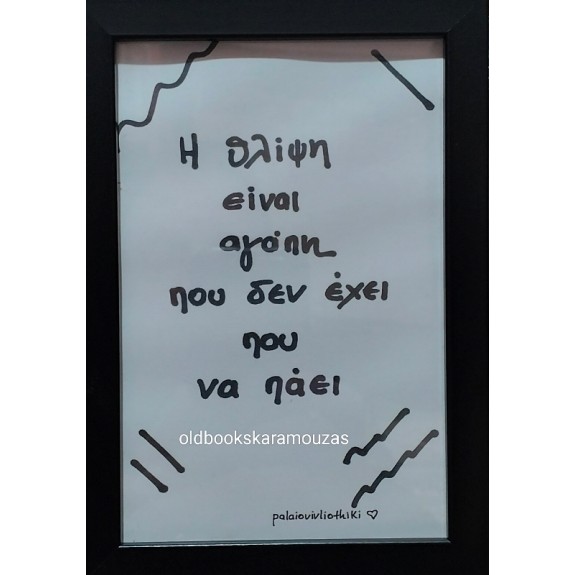 Η θλίψη
είναι
αγάπη
που δεν έχει
που
να πάει
oldbookskaramouzas
palaiovivliothiki ♡